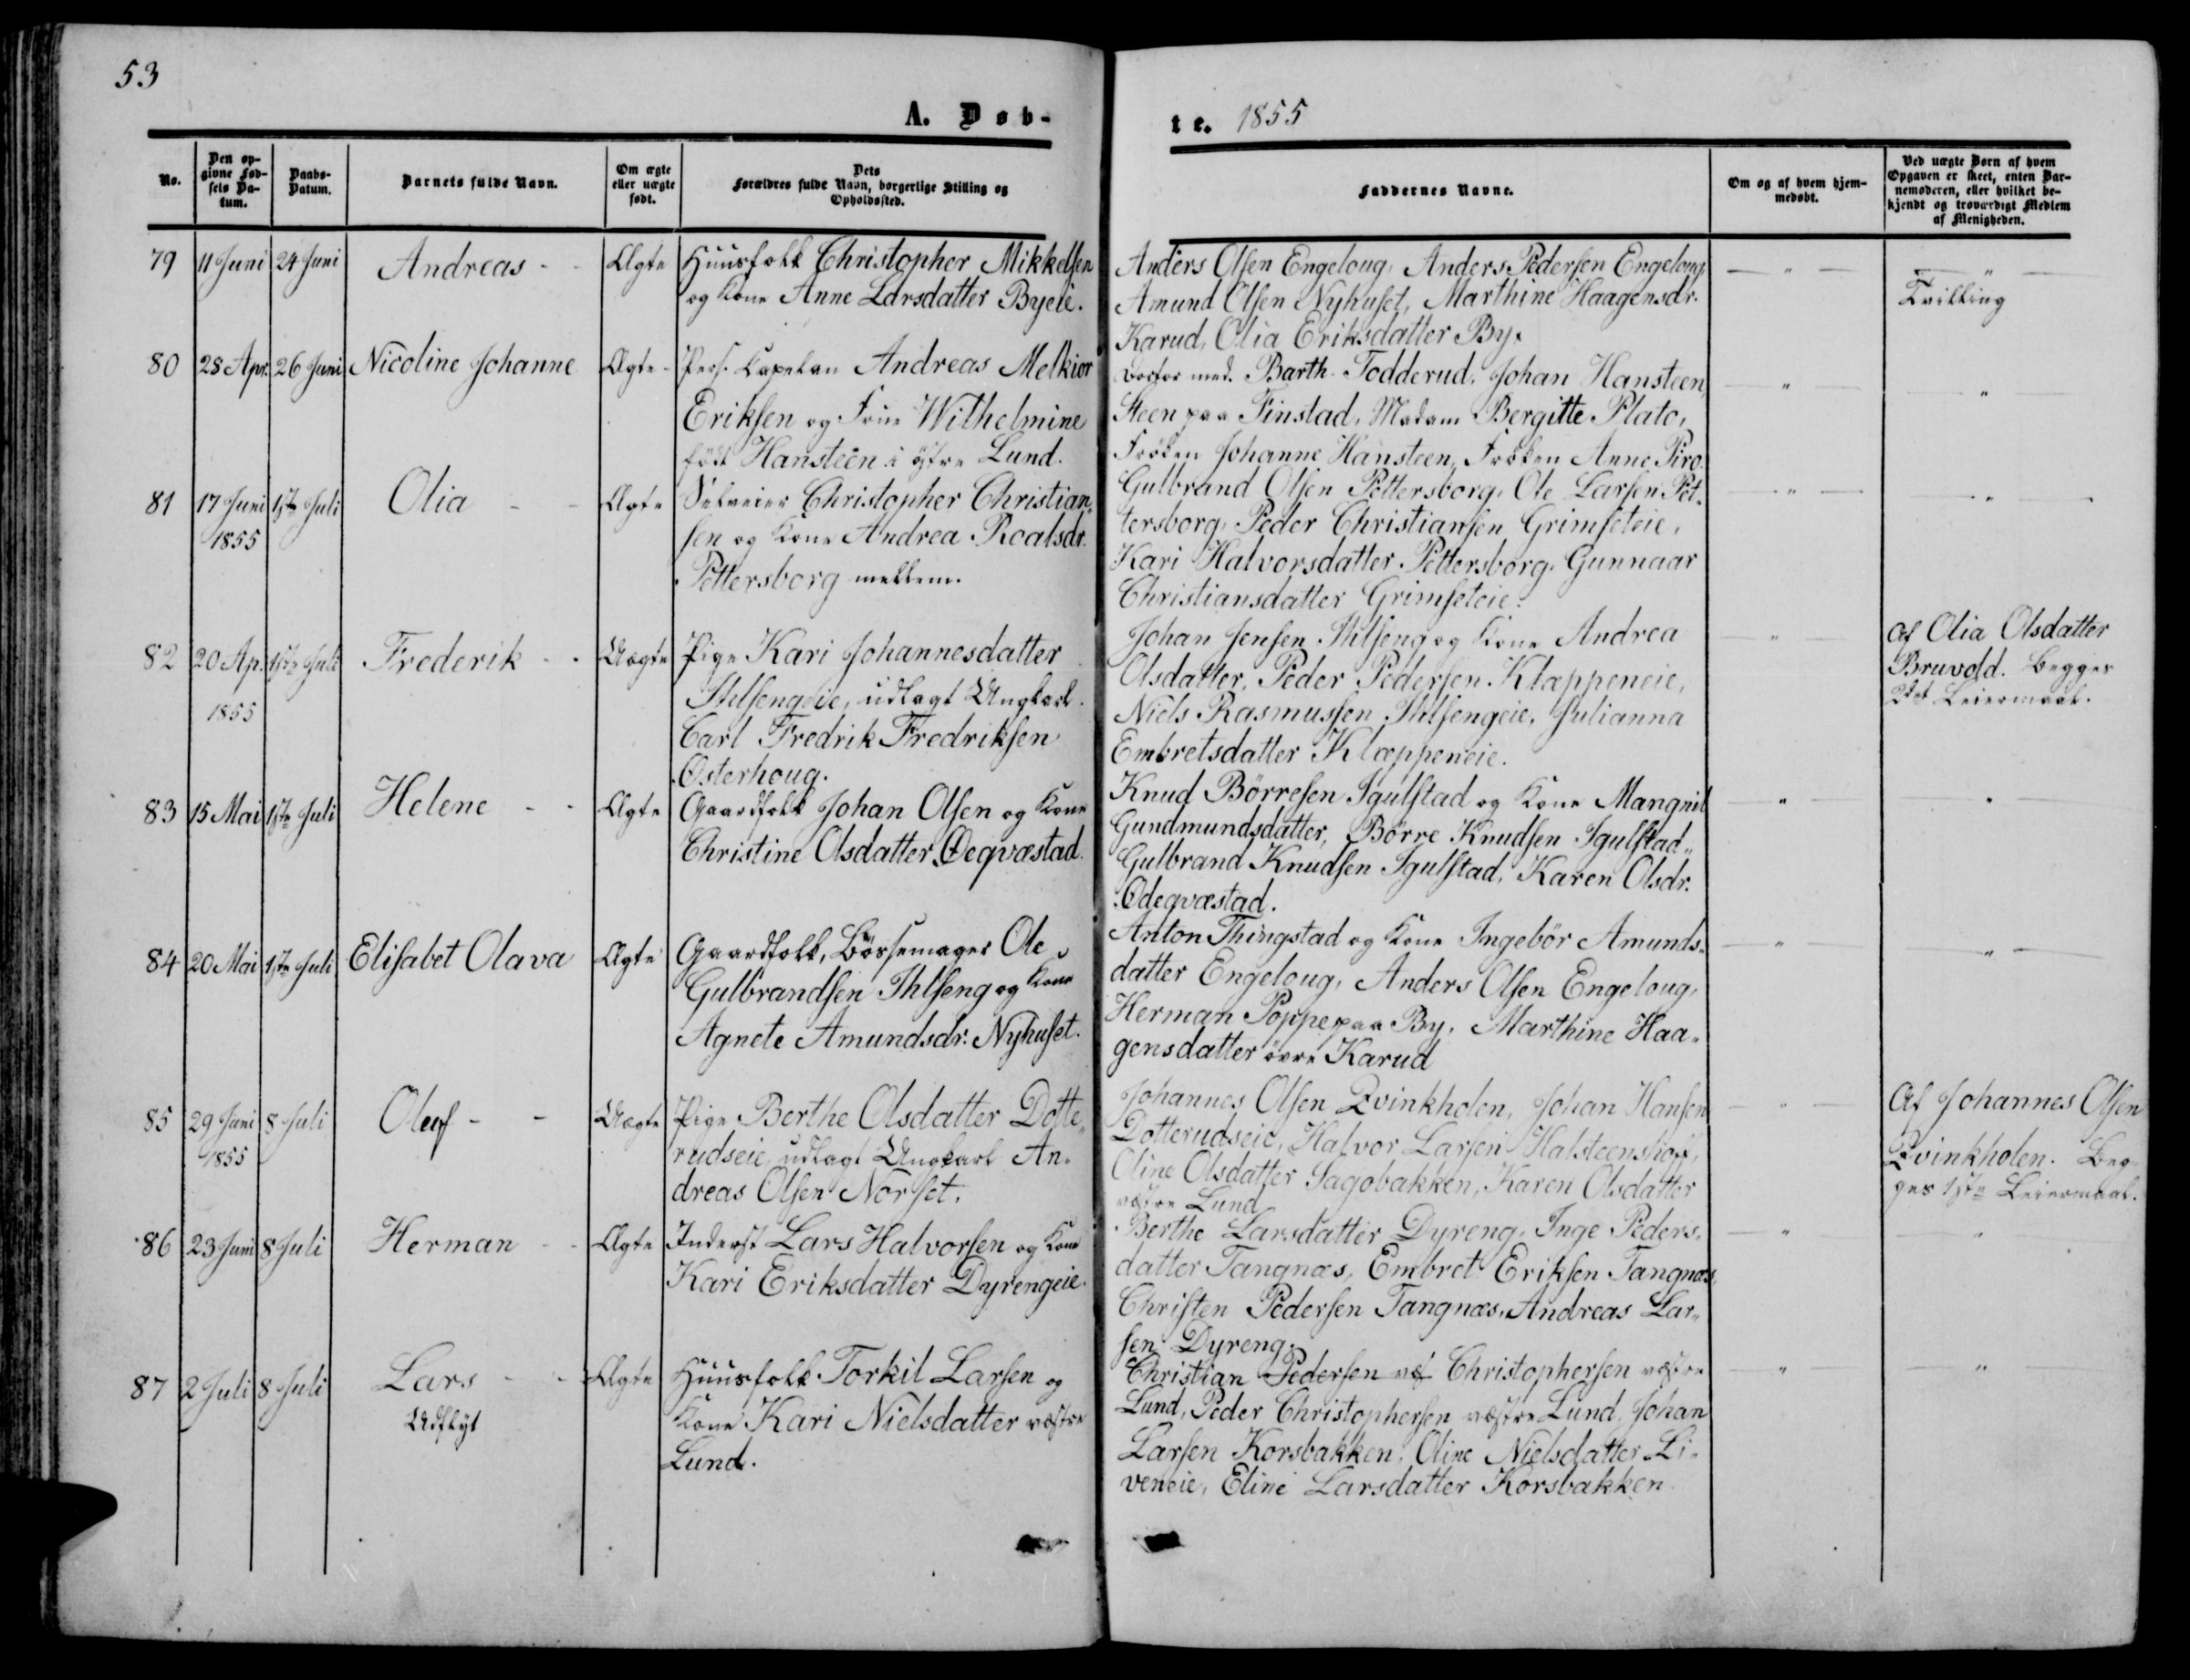 53
A. Døb-
te. 1855
No.
Den op-
givne Fød-
sels Da-
tum.
Daabs-
Datum.
Barnets fulde Navn.
Om ægte
eller uægte
født.
Dets
Forældres fulde Navn, borgerlige Stilling og
Opholdssted.
Faddernes Navne.
Om og af hvem hjem-
medøbt.
Ved uægte Børn af hvem
Opgaven er skeet, enten Bar-
nemoderen, eller hvilket be-
kjendt og troværdigt Medlem
af Menigheden.
79 11 Juni 24 Juni Andreas - - Ægte Huusfolk Christopher Mikkelsen
og Kone Anne Larsdatter Byeie.
Anders Olsen Engeloug, Anders Pedersen Engeloug
Amund Olsen Nyhuset, Marthine Haagensdr.
Karud, Olia Eriksdatter By.
— " —
— " —
Tvilling
80 28 Apr. 26 Juni Nicoline Johanne Ægte - Pers. Capelan Andreas Melkior
Eriksen og Frue Wilhelmine
født Hansteen i østre Lund.
Doctor med. Barth. Todderud, Johan Hansteen,
Steen paa Finstad, Madam Bergitte Plato,
Frøken Johanne Hansteen, Frøken Anne Piro.
— " —
"
81 17 Juni 1ste Juli Olia - - Ægte Selveier Christopher Christian-
1855 sen og Kone Andrea Roalsdr.
Pettersborg mellem.
Gulbrand Olsen Pettersborg, Ole Larsen Pet-
tersborg, Peder Christiansen Grimseteie,
Kari Halvorsdatter Pettersborg, Gunnaar
Christiansdatter Grimseteie.
— " —
— " —
82 20 Ap. 1ste Juli Frederik - - Uægte Pige Kari Johannesdatter
1855 Ihlsengeie, udlagt Ungkarl
Carl Fredrik Fredriksen
Osterhoug.
Johan Jensen Ihlseng og Kone Andrea
Olsdatter, Peder Pedersen Klæppeneie,
Niels Rasmussen Ihlsengeie, Julianna
Embretsdatter Klæppeneie.
— " —
Af Olia Olsdatter
Bruvold. Begges
2det Leiermaal.
83 15 Mai 1ste Juli Helene - - Ægte Gaardfolk Johan Olsen og Kone
Christine Olsdatter Øeqvæstad.
Knud Börresen Igulstad og Kone Mangnil
Gundmundsdatter, Börre Knudsen Igulstad,
Gulbrand Knudsen Igulstad, Karen Olsdr.
Ödeqvæstad.
"
"
84 20 Mai 1ste Juli Elisabet Olava Ægte Gaardfolk, Børsemager Ole
Gulbrandsen Ihlseng og Kone
Agnete Amundsdr. Nyhuset.
Anton Thingstad og Kone Ingebör Amunds-
datter Engeloug, Anders Olsen Engeloug,
Herman Poppe paa By, Marthine Haa-
gensdatter övre Karud
— " —
— " —
85 29 Juni 8 Juli Oluf - - Uægte Pige Berthe Olsdatter Dotte-
1855 rudseie, udlagt Ungkarl An-
dreas Olsen Norset.
Johannes Olsen Qvinkholen, Johan Hansen
Dotterudseie, Halvor Larsen Halsteenshoff,
Oline Olsdatter Sagobakken, Karen Olsdatter
østre Lund
— " —
Af Johannes Olsen
Qvinkholen. Beg-
ges 1ste Leiermaal.
86 23 Juni 8 Juli Herman - - Ægte Inderst Lars Halvorsen og Kone
Kari Eriksdatter Dyrengeie.
Berthe Larsdatter Dyreng, Inge Peders-
datter Tangnæs, Embret Eriksen Tangnæs
Christen Pedersen Tangnæs, Andreas Lar-
sen Dyreng.
— "
"
87 2 Juli 8 Juli Lars - - Ægte Huusfolk Torkil Larsen og
Udflyt Kone Kari Nielsdatter vestre
Lund.
Christian Pedersen Christophersen vestre
Lund, Peder Christophersen vestre Lund, Johan
Larsen Korsbakken, Oline Nielsdatter Li-
veneie, Eline Larsdatter Korsbakken.
"
— " —